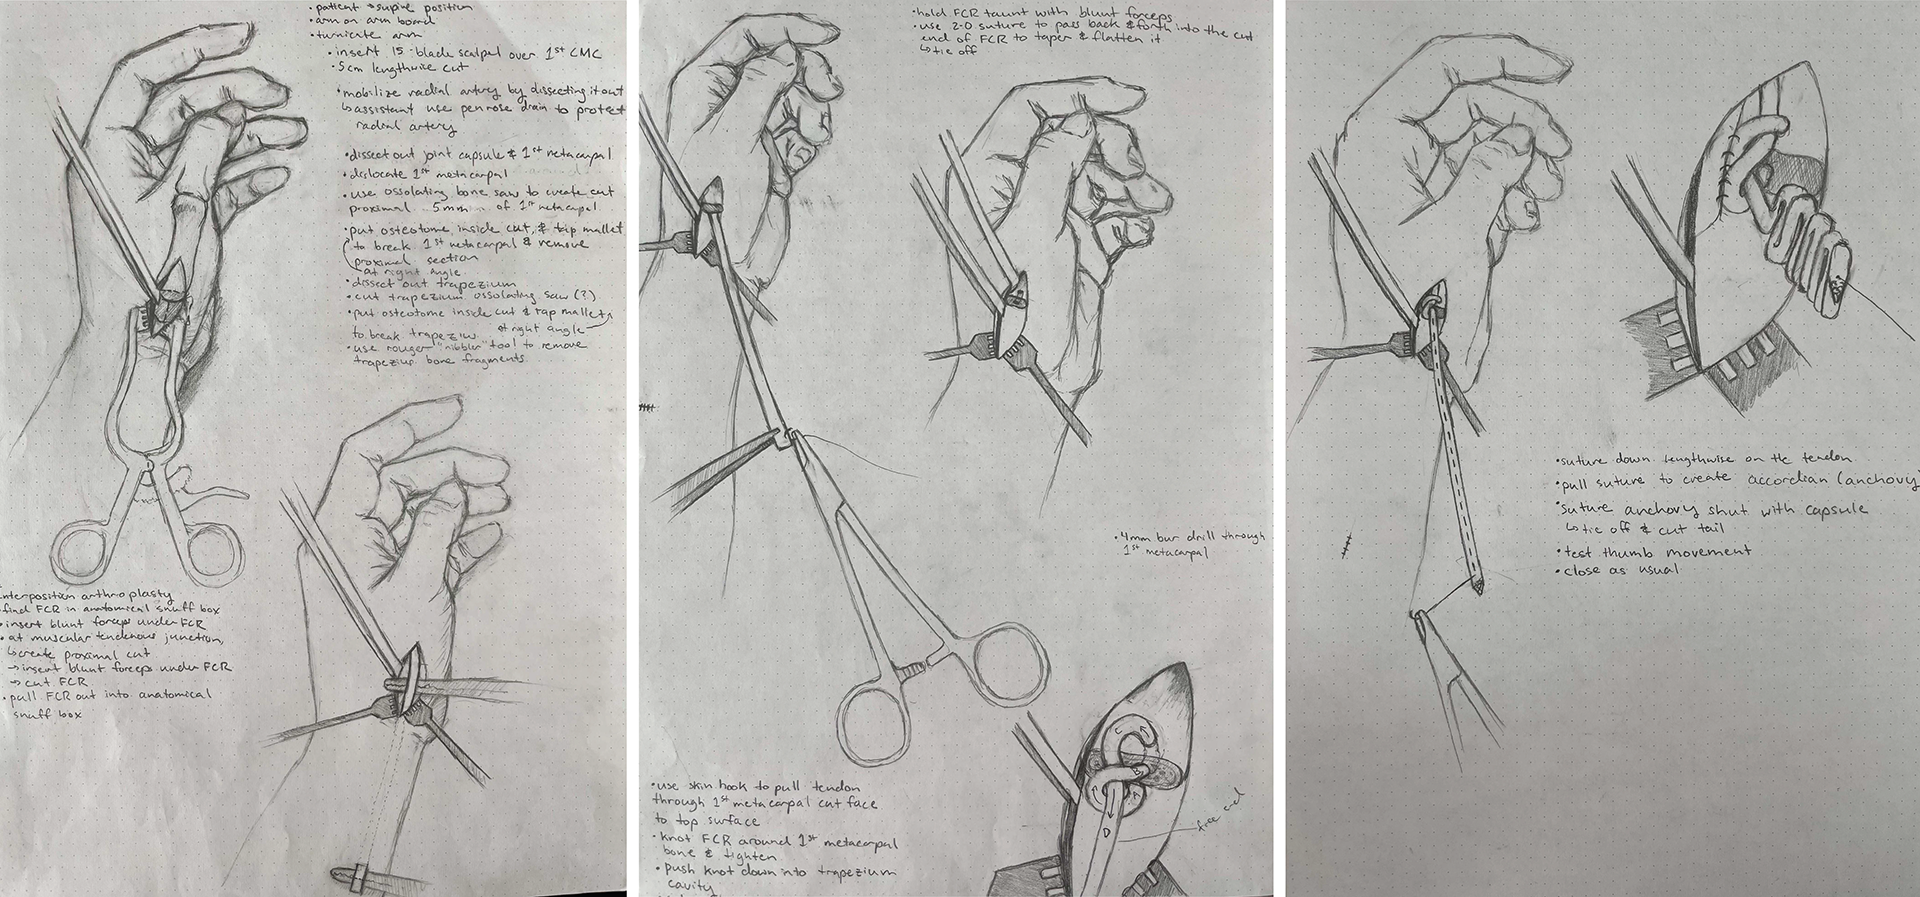 • patient → supine position
• arm on arm board
• turnicate arm
• insert 15-blade scalpel over 1st CMC
• 5cm lengthwise cut
• mobilize radial artery by dissecting it out
↳ assistant use penrose drain to protect
radial artery
• dissect out joint capsule & 1st metacarpal
• dislocate 1st metacarpal
• use ossolating bone saw to create cut
proximal 5mm of 1st metacapel
• put osteotome inside cut, & tap mallet
to break 1st metacarpal & remove
proximal section
at right angle
• dissect out trapezium
• cut trapezium ossolating saw (?)
• put osteotome inside cut & tap mallet
to break trapezium at right angle
• use rouger "nibbler" tool to remove
trapezium bone fragments
interposition arthroplasty
find FCR in anatomical snuff box
• insert blunt forceps under FCR
• at muscular tendenous junction,
↳ create proximal cut
→ insert blunt forceps under FCR
→ cut FCR
• pull FCR out into anatomical
snuff box
• hold FCR taunt with blunt forceps
• use 2-0 suture to pass back & forth into the cut
end of FCR to taper & flatten it
↳ tie off
• 4mm bur drill through
1st metacarpal
• use skin hook to pull tendon
through 1st metacarpal cut face
to top surface
• knot FCR around 1st metacarpal
bone & tighten
• push knot down into trapezium
cavity
free end
D
• suture down lengthwise on the tendon
• pull suture to create accordian (anchovy
• suture anchovy shut with capsule
↳ tie off & cut tail
• test thumb movement
• close as usual